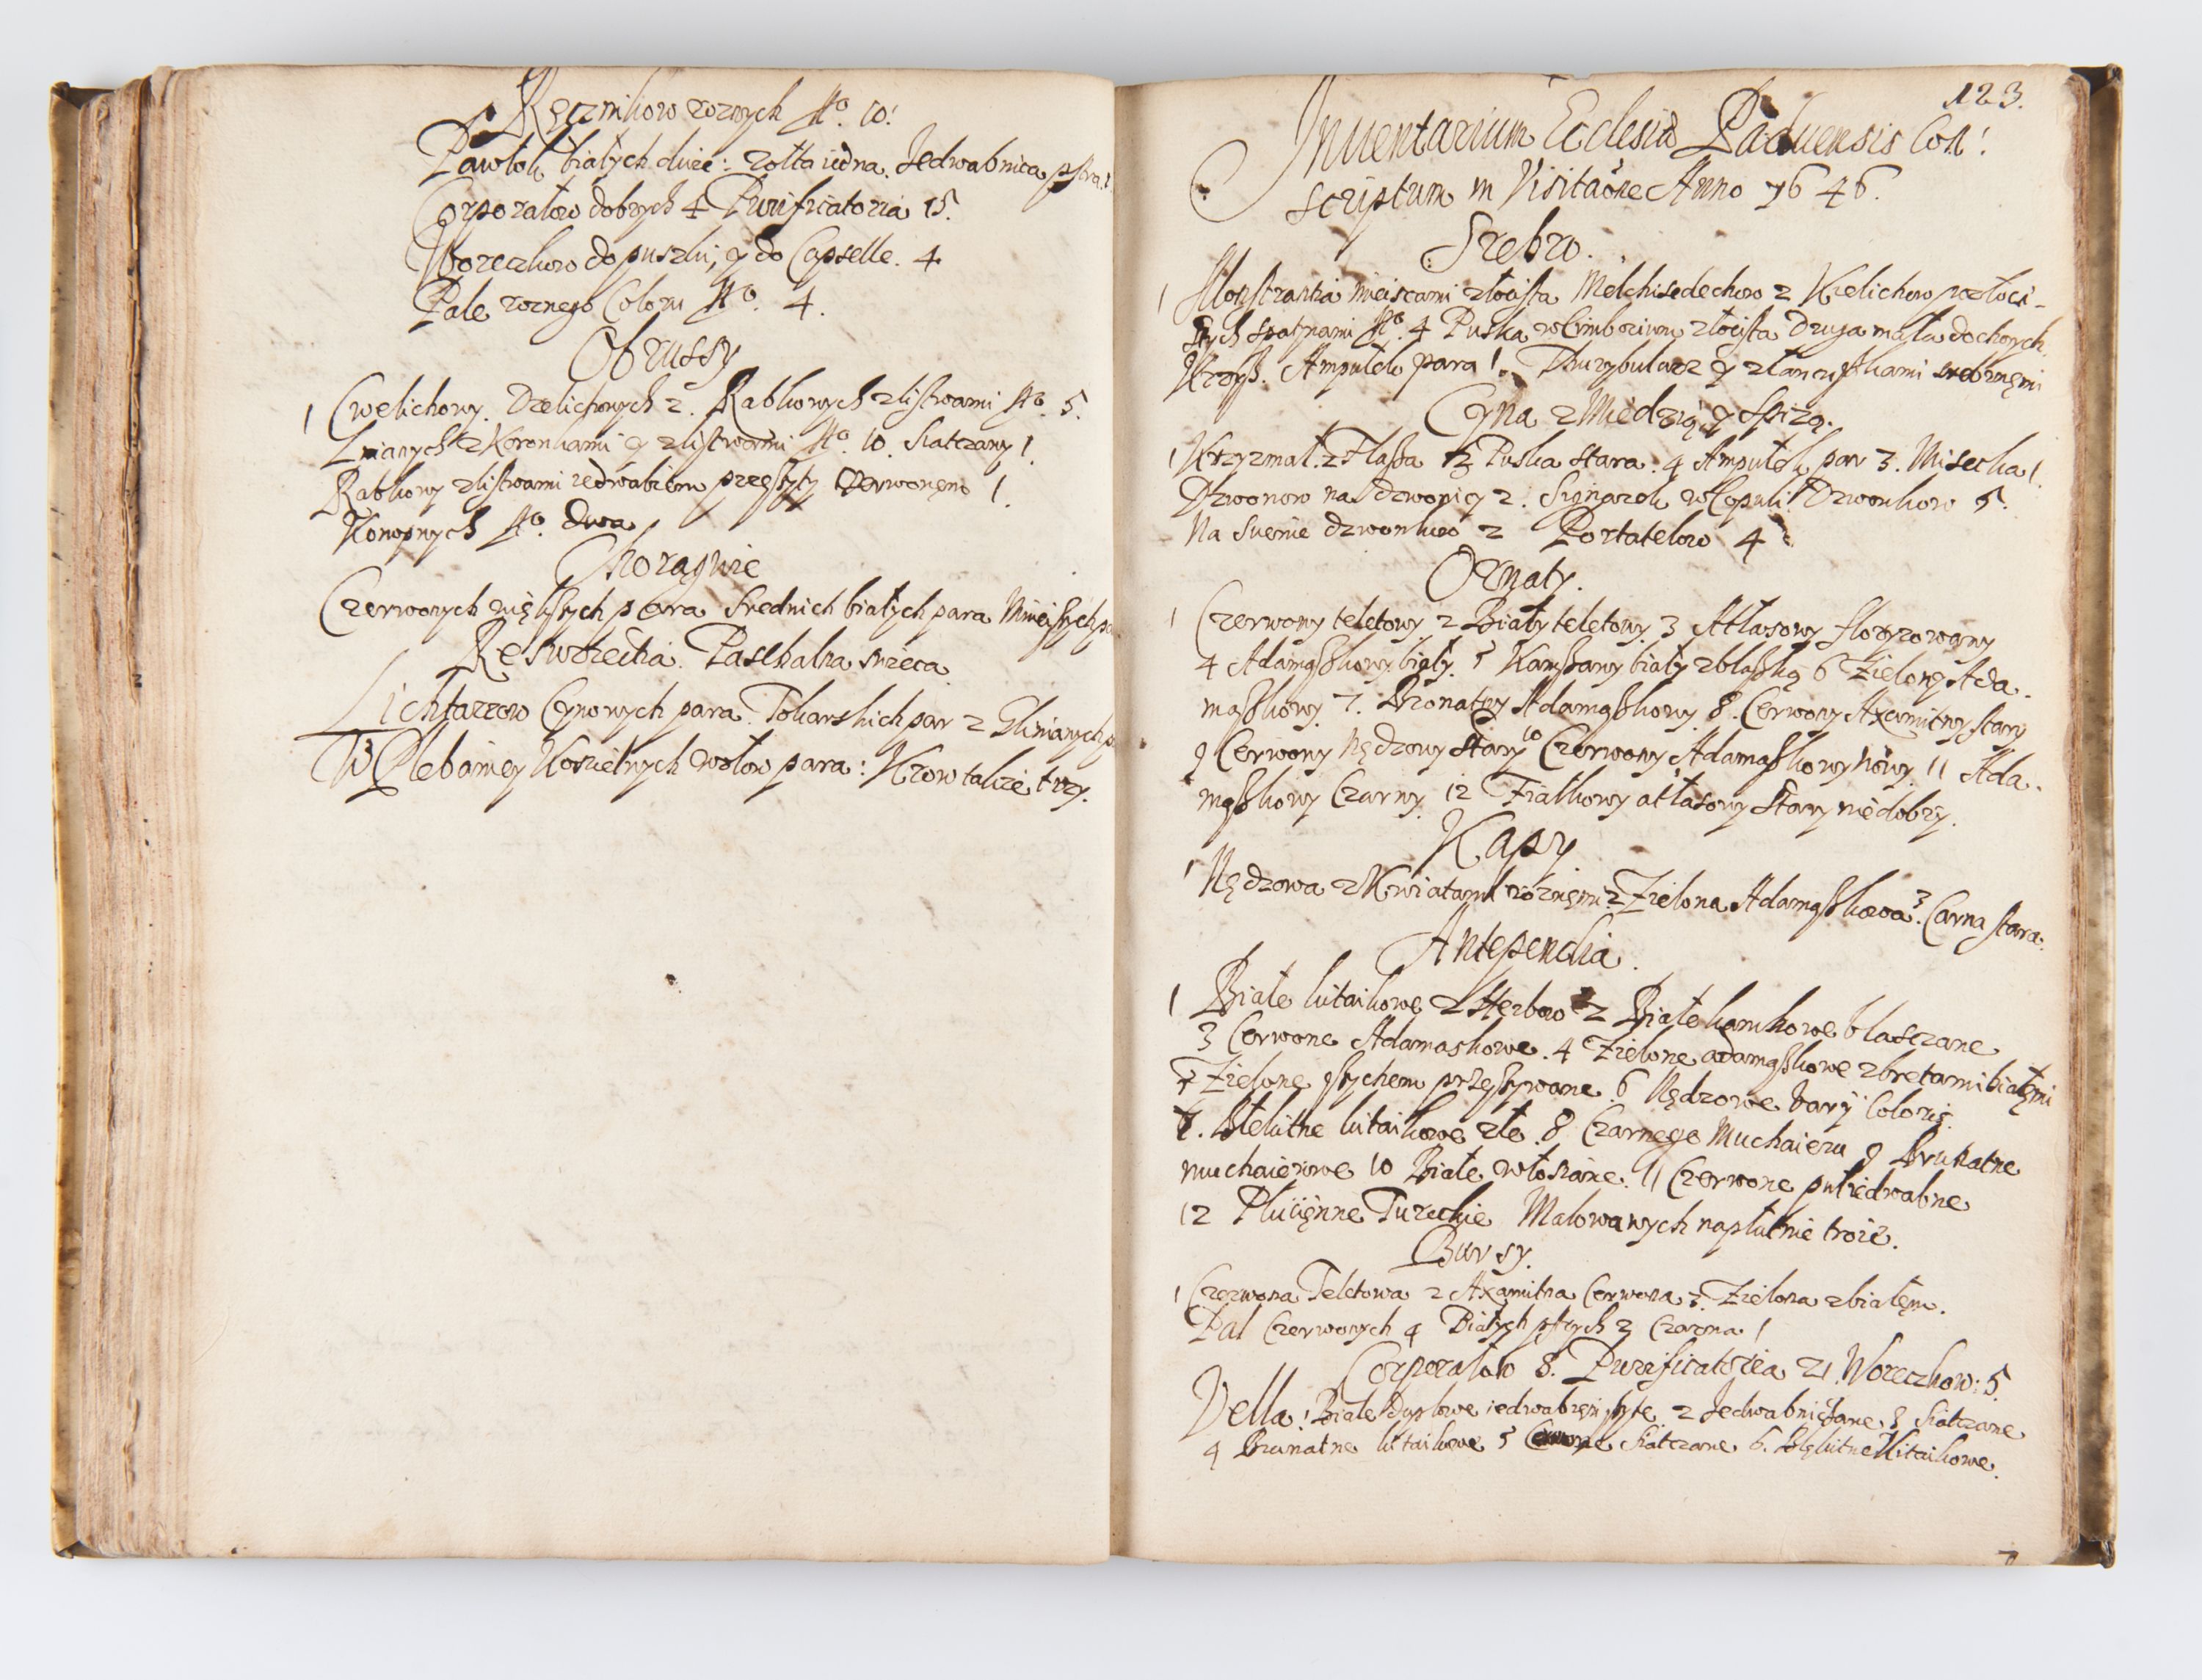 Ręcznikow roznych No. 10.
Pawłok białych dwie: zołta iedna. Jedwabnica pstra 1
Corporałow dobrych 4 Purificatoria 15.
Woreczkow do puszki, y do Capselle. 4
Pale roznego Coloru No. 4.
Obrussy
1 Cwelichowy. Drelichowych 2. Rabkowych z listwami No. 5.
Lnianych z Koronkami y z listwami No. 10. Siatczany 1
Rabkowy z listwami iedwabiem przeszyty Czerwonęm 1.
Konopnych No. dwa
Choragwie
Czerwonych więtszych para Srednich białych para Mnieyszych pa
Resurectia. Paschalna swieca
Lichtarzow Cynowych para. Tokarskich par 2 Glinianych p
W Plebaniey Koscielnych wołow para: Krow także trzy.
123.
Inuentarium Ecclesiæ Con:
scriptum in Visitaõne Anno 1646.
Srebro.
1 Monstrantia mieiscami złocista Melchisedechow 2 Kielichow pozłoci-
stych spatynami No. 4 Puska w Cimborium złocista Druga mała do chorych.
Krzyß. Ampułek para 1. Thurybularz y z łancuszkami srebrnęmi
Cyna z Miedzią, y Spizą.
1 Krzyzmał. 2 Flaßa 3 Puska stara. 4 Ampułek par 3. Misecka 1.
Dzwonow na dzwonicy 2. Signarek w Copuli 1 Dzwonkow 5.
Na Suenie dzwonkow 2 Portatelow 4
Ornaty.
1 Czerwony teletowy 2 Biały teletowy 3 Atłasowy floryzowany
4 Adamaßkowy biały. 5 Kamßany biały z blaßką 6 Zielony Ada-
maßkowy 7. Bronatny Adamaßkowy 8. Cerwony Axamitny stary
9 Cerwony Nędzowy stary 10 Czerwony Adamaßkowy Nowy 11 Ada-
maßkowy Czarny. 12 Fiałkowy atłasowy stary niedobry.
Kapy
1 Nędzowa z Kwiatami roznęmi 2 Zielona Adamaßkowa 3. Carna stara.
Antependia.
1 Białe kitaikowe z Herbow 2 Białe kamkowe blasczane
3 Cerwone Adamaskowe. 4 Zielone adamaßkowe z bretami białęmi
5 Zielone sztychem przeszywane 6 Nędzowe Varij Coloris.
7. Błekitne kitaikowe złe. 8 Czarnego Muchaieru 9 Brunatne
muchaierowe 10 Białe włosiane. 11 Czerwone pułiedwabne
12 Płucięnne Tureckie Malowanych na płutnie troie.
Bursy.
1 Czerwona Teletowa 2 Axamitna Cerwona 3. Zielona z białęm.
Pal Czerwonych 4 Białych pstrych 2 Czarna 1
Corporałow 8. Purificatoria 21 Woreczkow: 5
Vella. 1 Białe iedwabięm szyte. 2 3 Siatczane
4 Brunatne kitaikowe 5 Siatczane 6. Błękitne Kitaikowe.